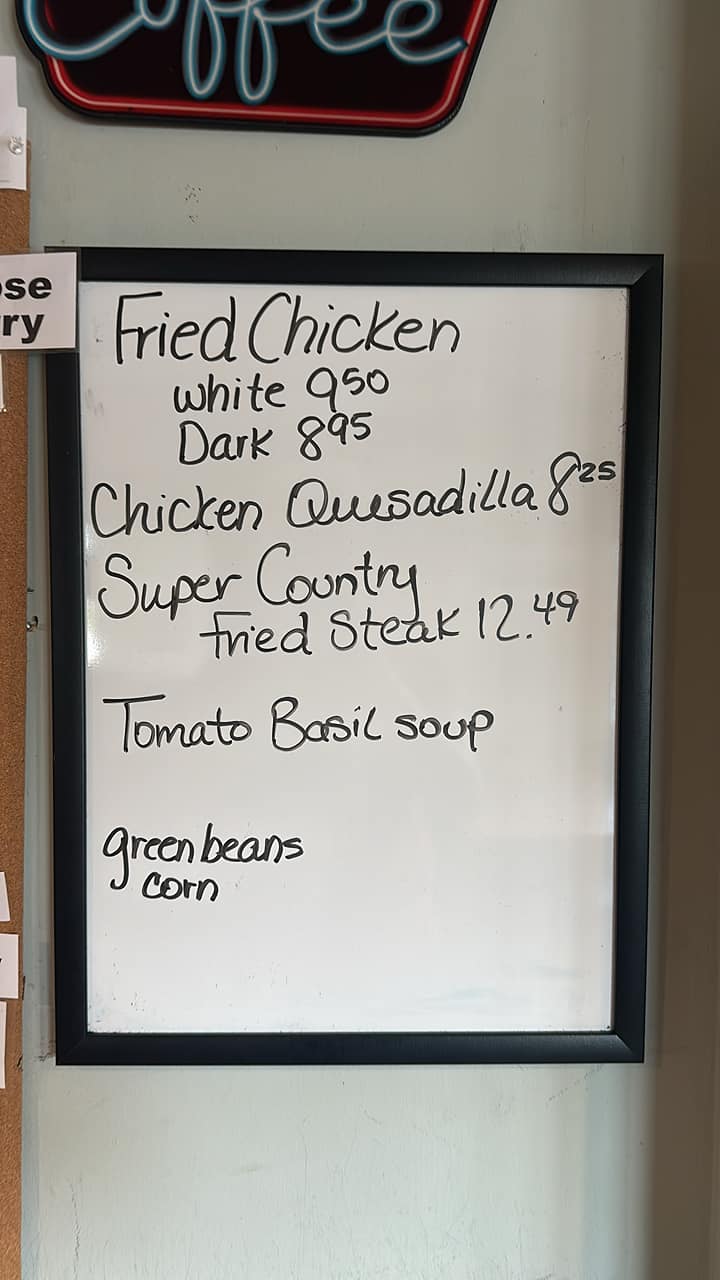 Coffee
ose
ry
Fried Chicken
white 950
Dark 895
Chicken Quesadilla 825
Super Country
Fried Steak 12.49
Tomato Basil soup
green beans
corn